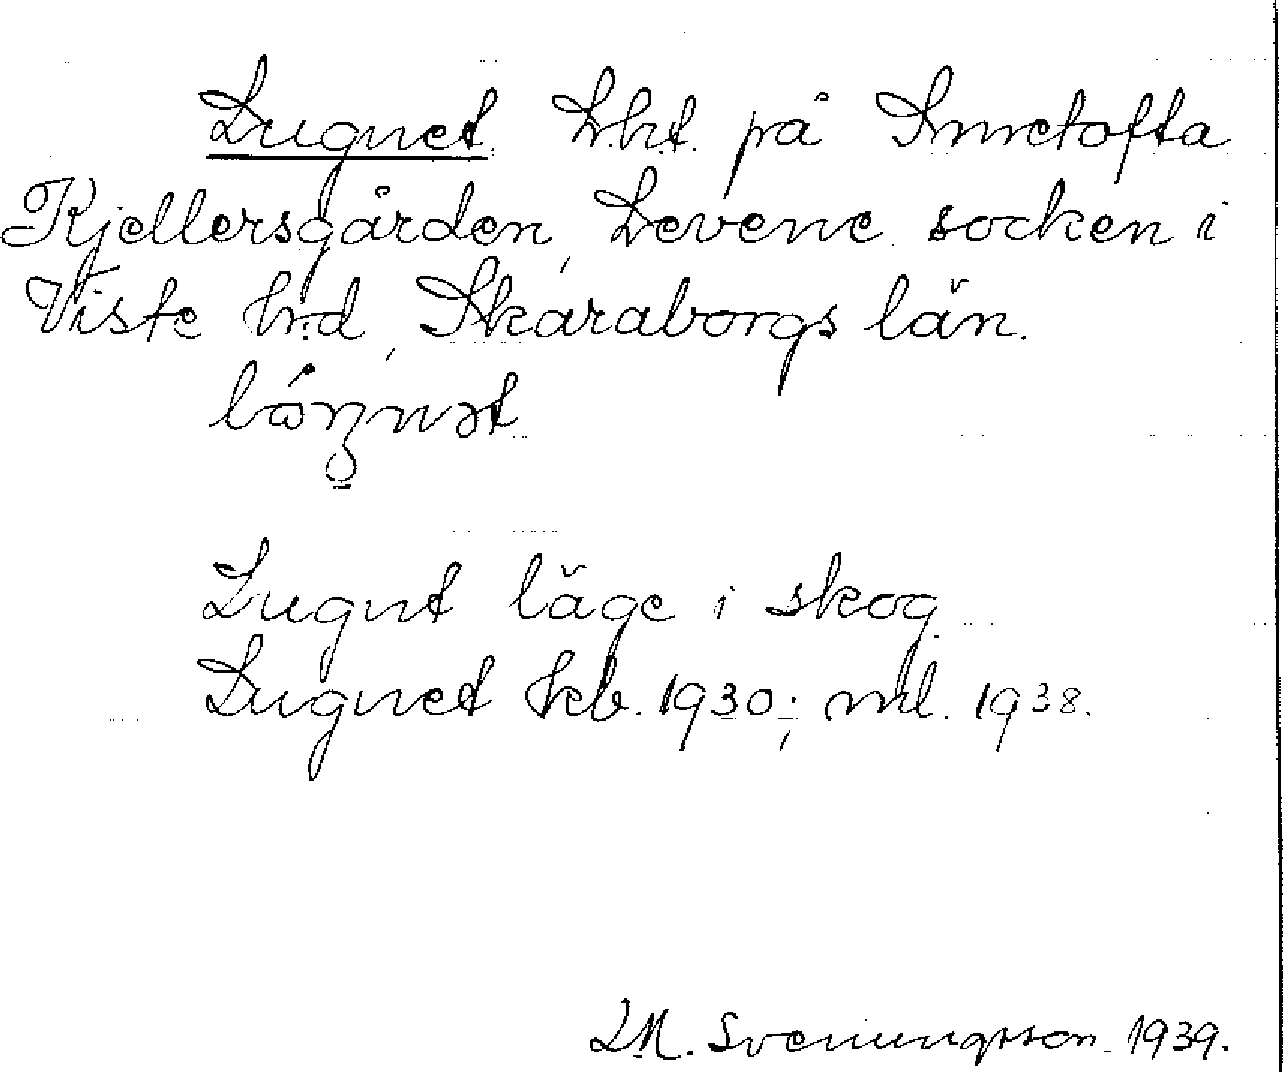 Lugnet. Lht. på Smetofta
Kjellersgården, Levene socken i
Viste hrd, Skaraborgs län.
Lugnt läge i skog.
Lugnet Hcb. 1930; ml. 1938.
LM. Svenungsson 1939.